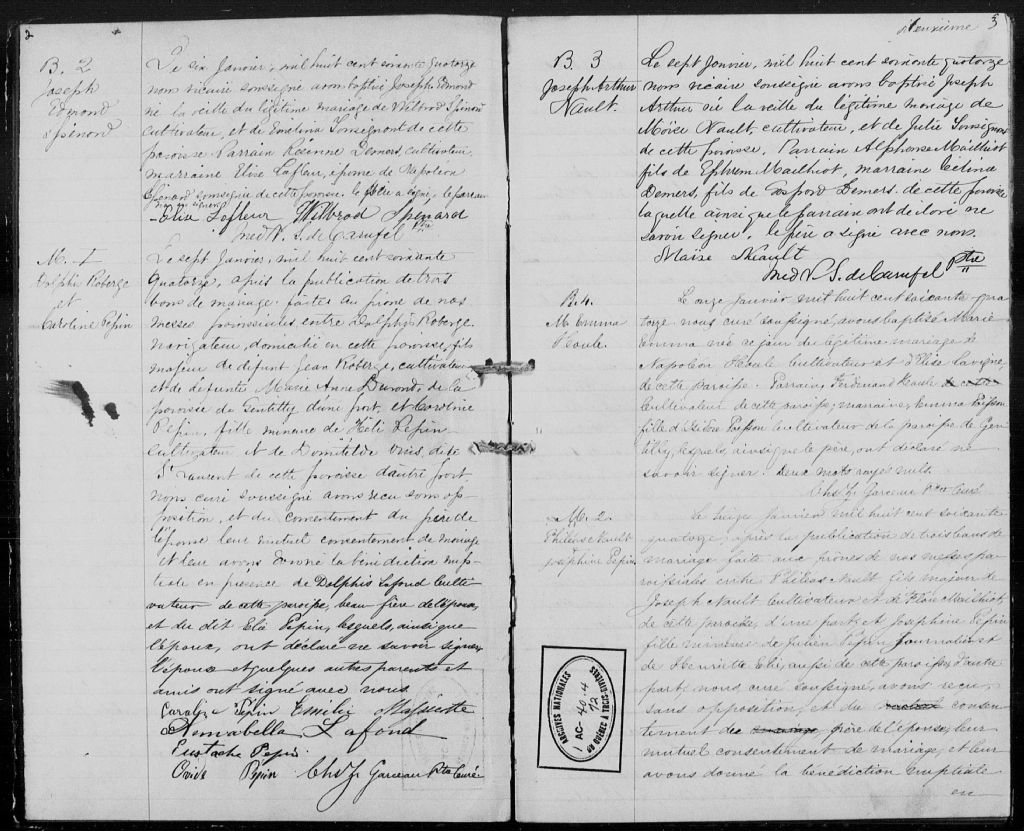 2
B. 2
Joseph
Edmond
Spénard
Le six Janvier, mil huit cent soixante quatorze
nous vicaire soussigné avons baptisé Joseph Edmond
né la veille du légitime mariage de Wilbrod Spénard
cultivateur, et de Evelina Sonsignont de cette
paroisse. Parrain Rosenne Demers, cultivateur
marraine Elise Lafleur, épouse de Napoleon
Spénard soussignée de cette paroisse. le père a signé, le parrain
Elise Lefleur Wilbrod Spenard
Med N. S. de Carufel Ptre
M. 1
Dolphis Roberge
et
Caroline Pepin
Le sept Janvier, mil huit cent soixante
quatorze, après la publication de trois
bans de mariage faite au prone de nos
messes paroissiales, entre Dolphis Roberge
navigateur, domicilié en cette paroisse, fils
majeur de défunt Jean Roberge, cultivateur
et de défunte Marie Anne Durand, de la
paroisse de Gentilly d'une part, et Caroline
Pepin, fille mineure de Héli Pepin
Cultivateur et de Domitilde dite
St Laurent de cette paroisse d'autre part
nous curé soussigné avons recu sans op-
position, et du consentement du père de
l'épouse leur mutuel consentement de mariage
et leur avons donné la bénédiction nup-
tiale en présence de Dolphis Lafond Culti-
vateur de cette paroisse, beau-frère de l'époux,
et du dit Elie Pepin, lesquels, ainsi que
l'époux, ont déclaré ne savoir signer,
l'épouse et quelques autres parents et
amis ont signé avec nous.
Caroline Pepin Emélie
Annabella Lafond
Eustache Pepin
Ovide Pépin Chs Z Garceau Ptre Curé
deuxième 3
B. 3
Joseph Arthur
Nault.
Le sept Janvier, mil huit cent soixante quatorze
nous vicaire soussigné avons baptisé Joseph
Arthur né la veille du légitime mariage de
Moïse Nault, cultivateur, et de Julie Sonsignont
de cette paroisse. Parrain Alphonse Mailhiot
fils de Ephrem Mailhiot, marraine Célina
Demers, fils de Demers. de cette paroisse
laquelle ainsi que le parrain ont déclaré ne
savoir signer. le père a signé avec nous.
Maise Neault
Med N. S. de Carufel Ptre
B. 4.
M. Emma
Houle.
Le onze Janvier mil huit cent soixante-qua
torze nous curé soussigné, avons baptisé Marie
Emma née ce jour du légitime mariage de
Napoléon Houle Cultivateur et d'Elise Lavigne,
de cette paroisse. Parrain, Ferdinand Houle
Cultivateur de cette paroisse, marraine, Emma Poisson
fille d'Isidore Poisson Cultivateur de la paroisse de Gen
tilly, lesquels, ainsi que le père, ont déclaré ne
savoir signer. Deux mots rayés nuls.
Chs Z Garceau Ptre Curé
M. 2.
Philias Nault
Josephine Pepin
Le treize Janvier mil huit cent soixante
quatorze, après la publication de trois bans de
mariage faite aux prônes de nos messes pa-
roissiales entre Philias Nault fils majeur de
Joseph Nault Cultivateur et de Flore Mailhiot,
de cette paroisse, d'une part, et Josephine Pepin
fille mineure de Julien Pepin Journalier et
de Henriette Elie, aussi de cette paroisse, d'autre
part, nous curé soussigné, avons recu,
sans opposition, et du consen-
tement du père de l'épouse, leur
mutuel consentement de mariage, et leur
avons donné la bénédiction nuptiale
en
ARCHIVES NATIONALES
1 AC-40-4
72
DU QUÉBEC A TROIS-RIVIERES